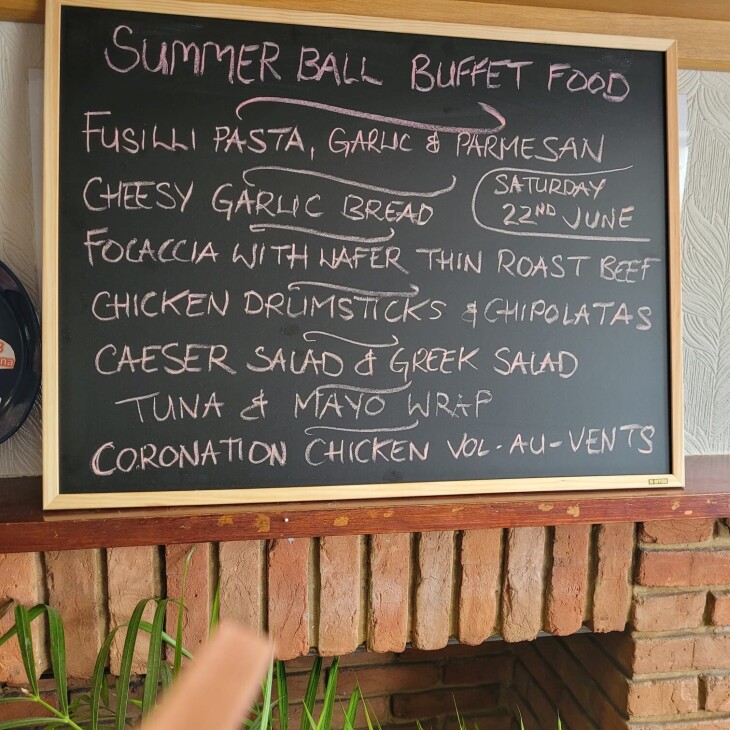 SUMMER BALL BUFFET FOOD
FUSILLI PASTA, GARLIC & PARMESAN
CHEESY GARLIC BREAD
SATURDAY
22ND JUNE
FOCACCIA WITH WAFER THIN ROAST BEEF
CHICKEN DRUMSTICKS & CHIPOLATAS
CAESER SALAD & GREEK SALAD
TUNA & MAYO WRAP
CORONATION CHICKEN VOL-AU-VENTS